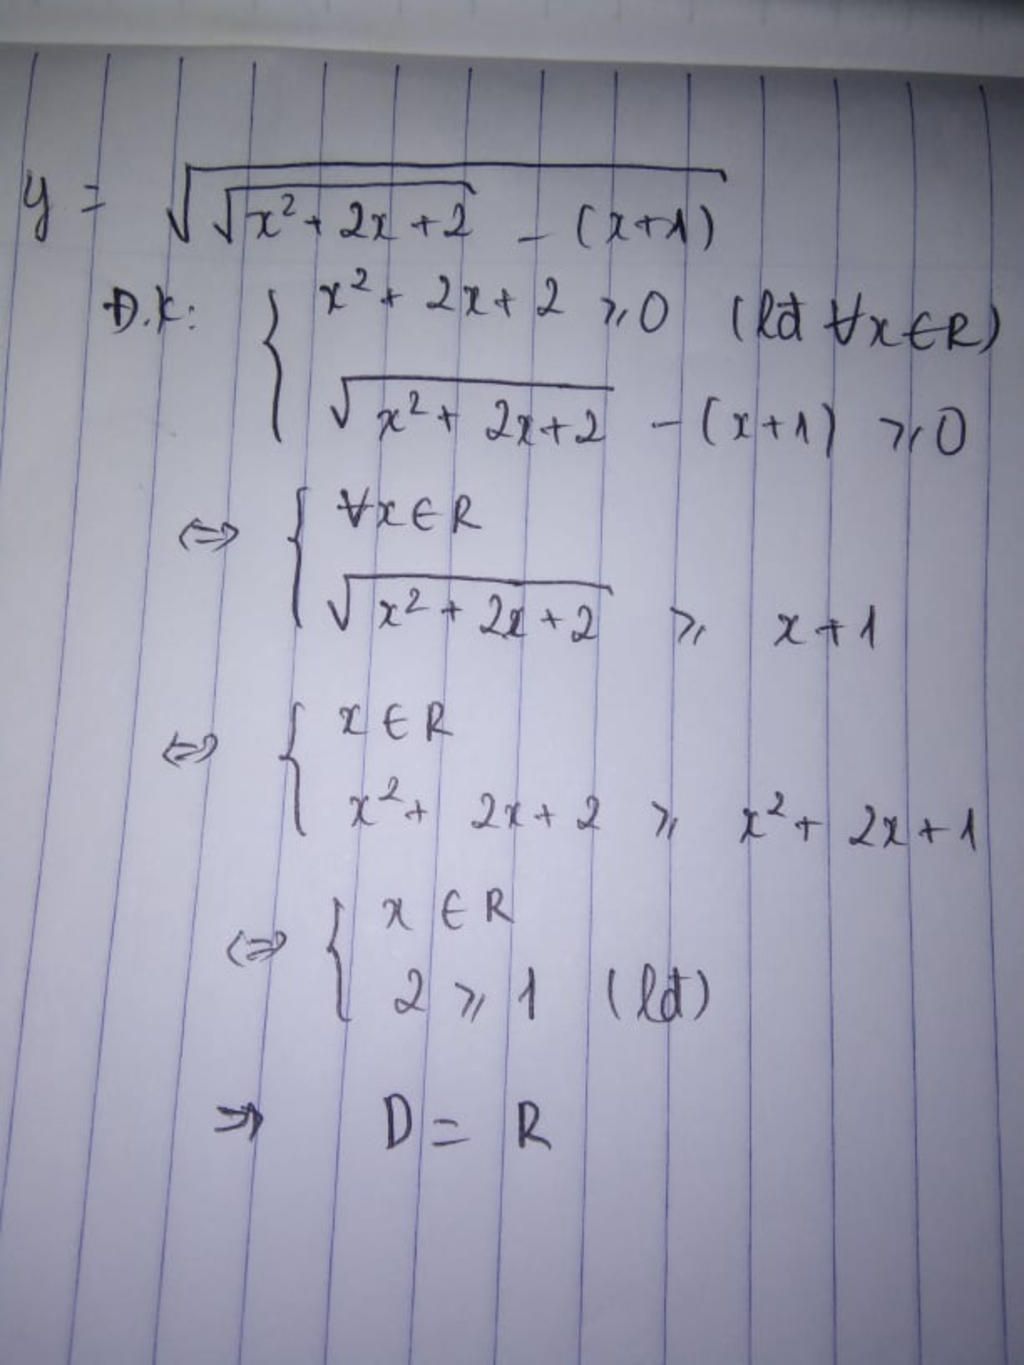 y = √(√(x² + 2x + 2) - (x+1))
Đ.K: { x² + 2x + 2 ⩾ 0 (lđ ∀x ∈ R)
√(x² + 2x + 2) - (x+1) ⩾ 0
⇔ { ∀x ∈ R
√(x² + 2x + 2) ⩾ x + 1
⇔ { x ∈ R
x² + 2x + 2 ⩾ x² + 2x + 1
⇔ { x ∈ R
2 ⩾ 1 (lđ)
⇒ D = R